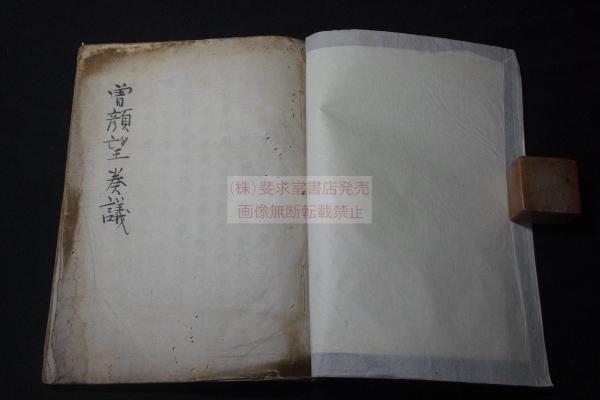 曽顔望奏議
(株)斐求堂書店発売
画像無断転載禁止